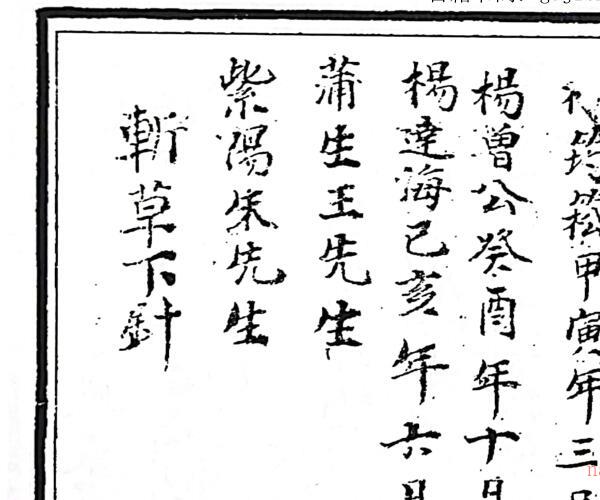 筠松甲寅年三
楊曽公癸酉年十月
楊達海己亥年六月
蒲生王先生
紫陽朱先生
斬草下針